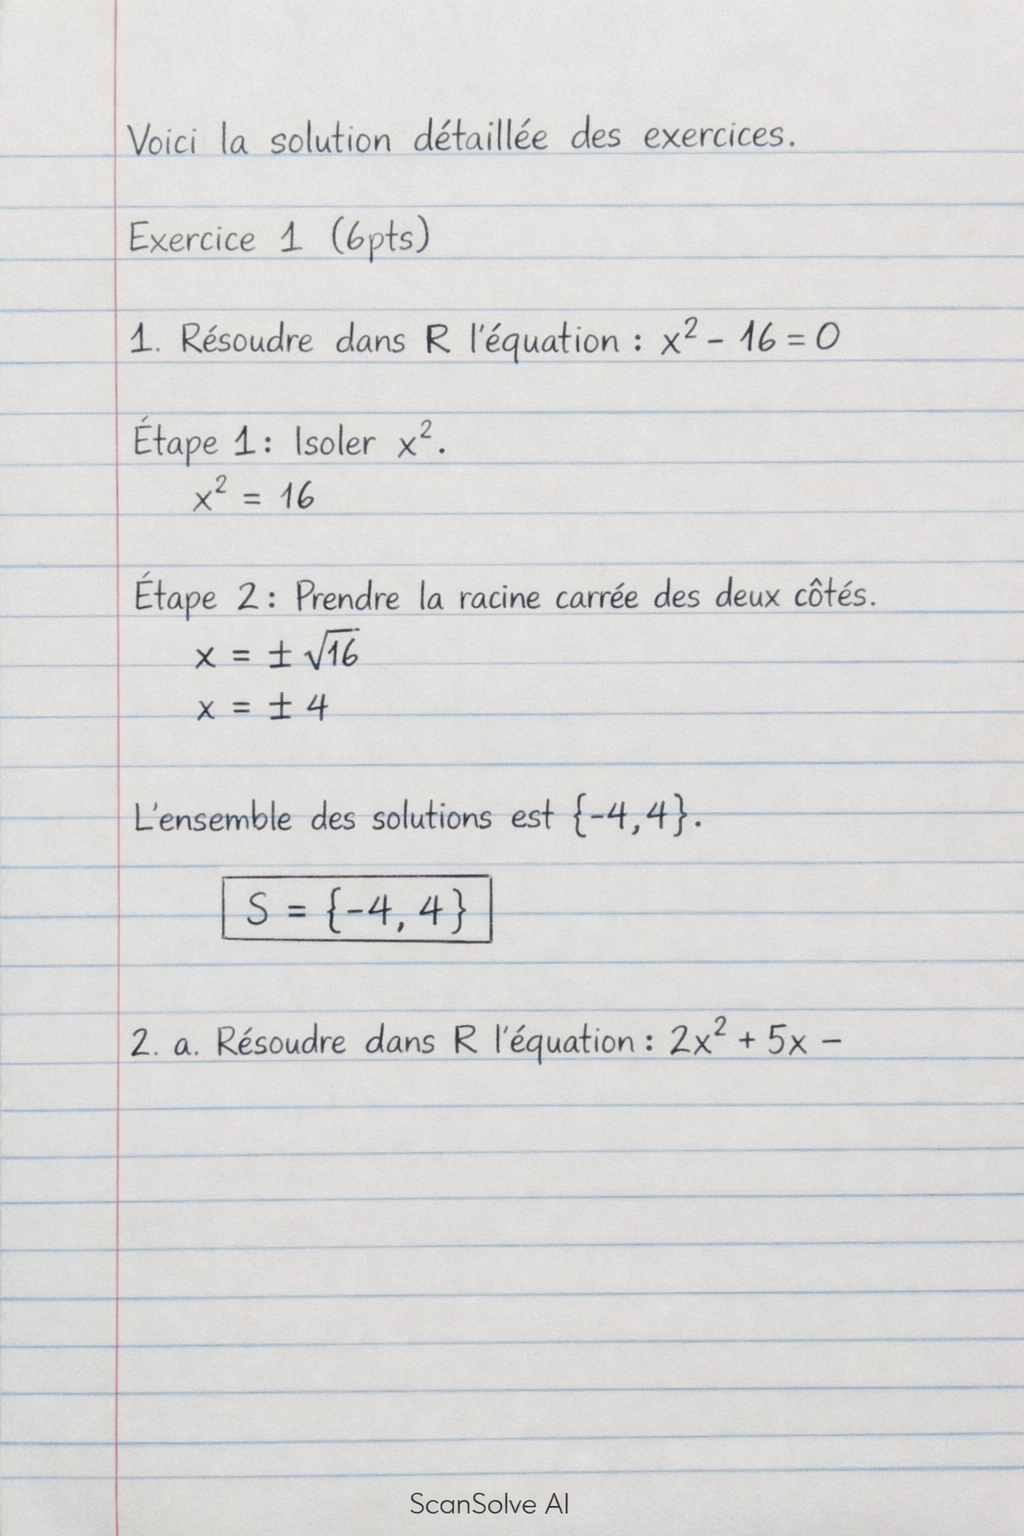 Voici la solution détaillée des exercices.
Exercice 1 (6pts)
1. Résoudre dans R l'équation : x² - 16 = 0
Étape 1 : Isoler x².
x² = 16
Étape 2 : Prendre la racine carrée des deux côtés.
x = ± √16
x = ± 4
L'ensemble des solutions est {-4, 4}.
S = {-4, 4}
2. a. Résoudre dans R l'équation : 2x² + 5x -
ScanSolve AI